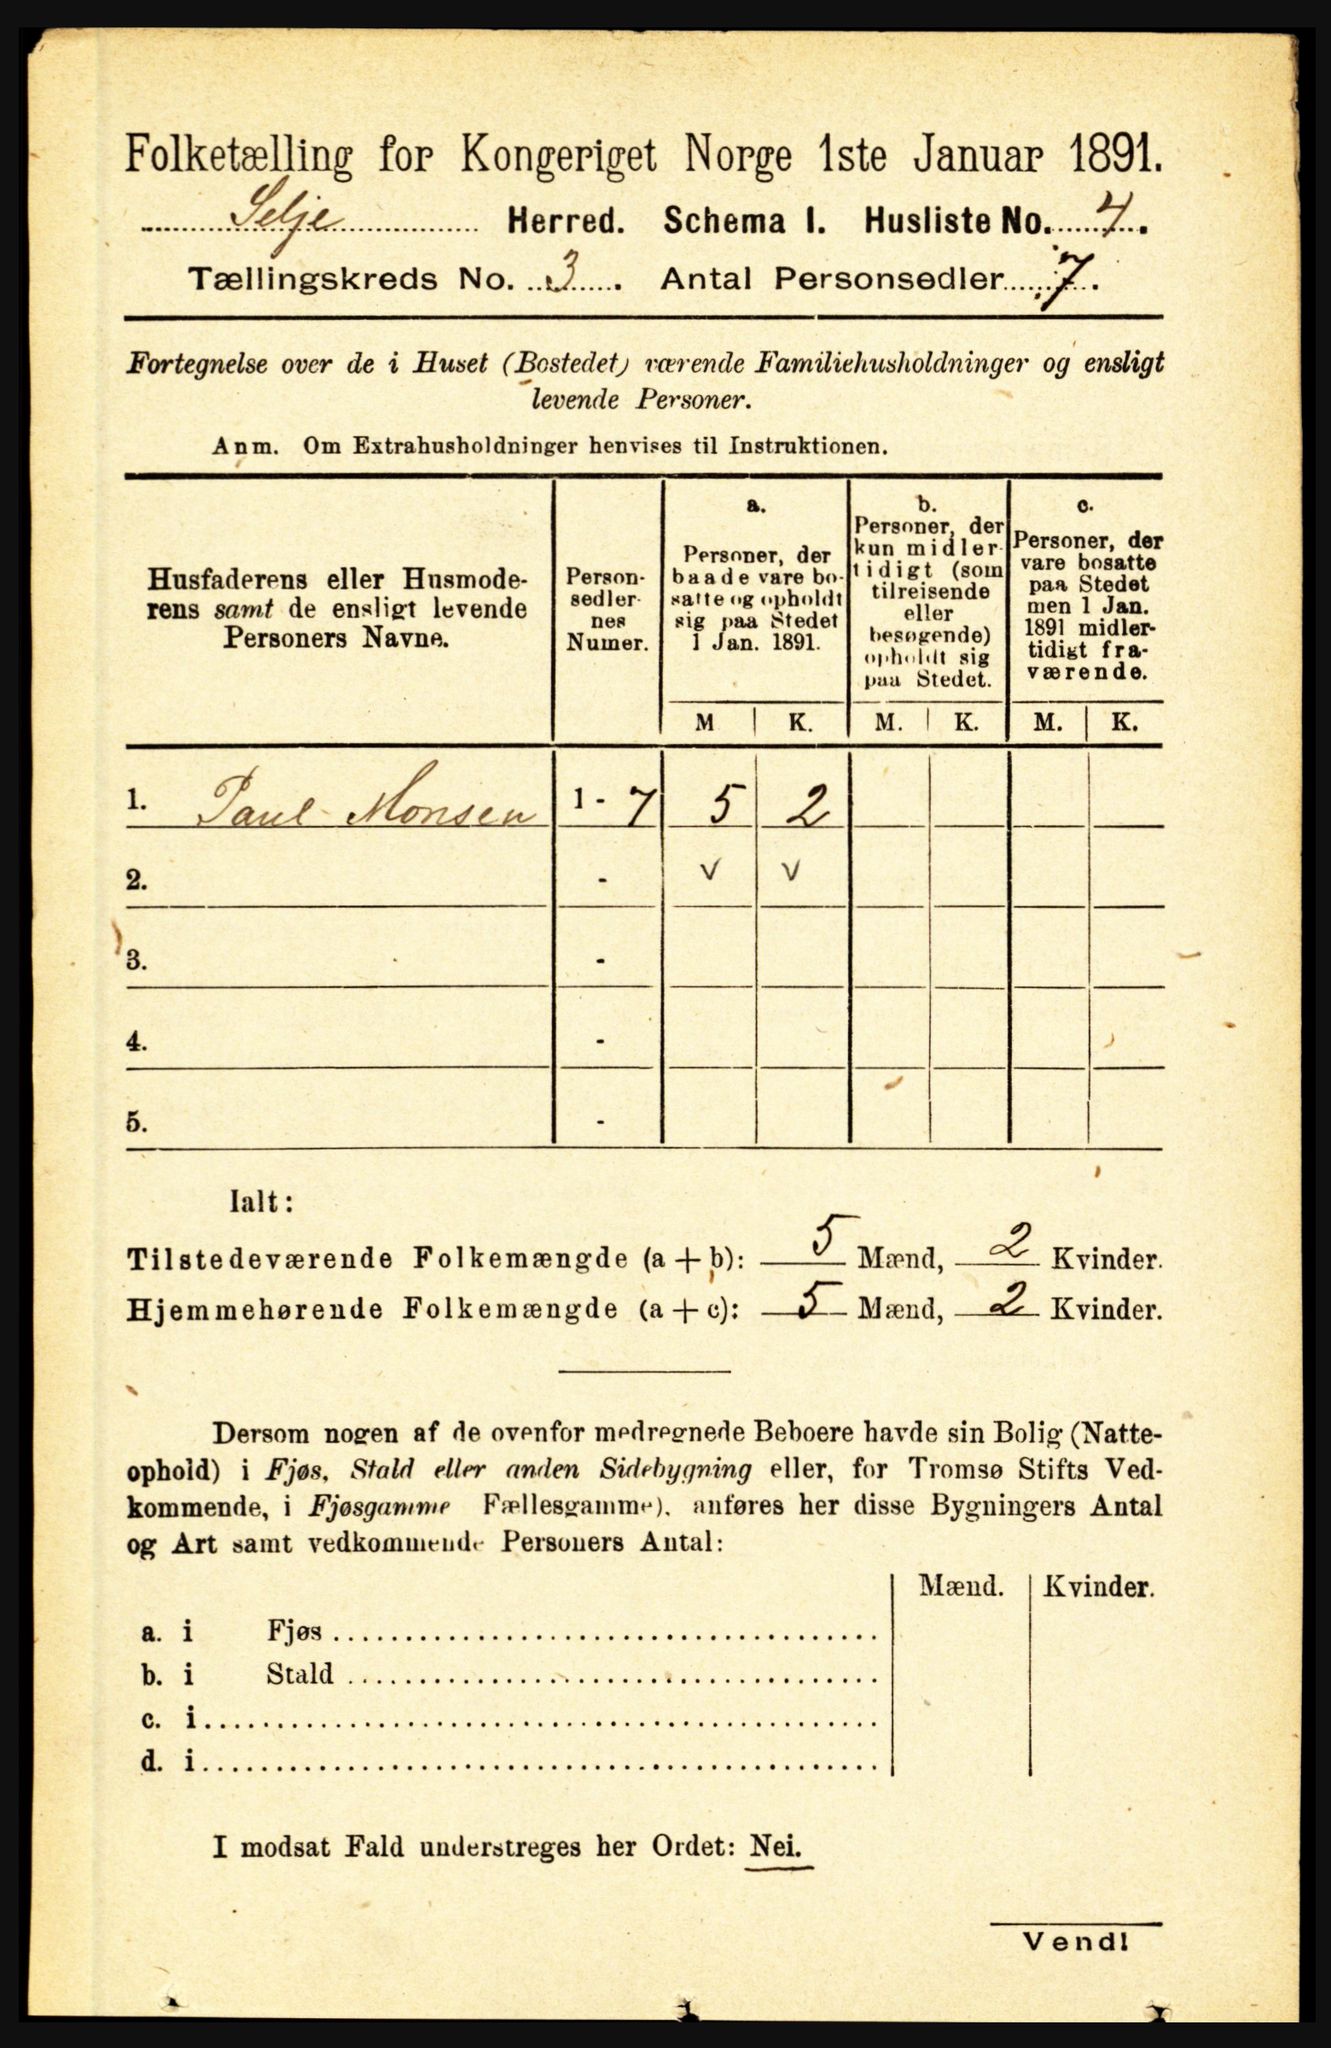 Folketælling for Kongeriget Norge 1ste Januar 1891.
Selje Herred. Schema I. Husliste No. 4.
Tællingskreds No. 3. Antal Personsedler 7.
Fortegnelse over de i Huset (Bostedet) værende Familiehusholdninger og ensligt
levende Personer.
Anm. Om Extrahusholdninger henvises til Instruktionen.
Husfaderens eller Husmode-
rens samt de ensligt levende
Personers Navne.
Person-
sedler-
nes
Numer.
a.
Personer, der
baade vare bo-
satte og opholdt
sig paa Stedet
1 Jan. 1891.
b.
Personer, der
kun midler-
tidigt (som
tilreisende
eller
besøgende)
opholdt sig
paa Stedet.
c.
Personer, der
vare bosatte
paa Stedet
men 1 Jan.
1891 midler-
tidigt fra-
værende.
M K. M. K. M. K.
1. Paul Monsen 1 - 7 5 2
2. - v v
3. -
4. -
5. -
Ialt:
Tilstedeværende Folkemængde (a + b): 5 Mænd, 2 Kvinder.
Hjemmehørende Folkemængde (a + c): 5 Mænd, 2 Kvinder.
Dersom nogen af de ovenfor medregnede Beboere havde sin Bolig (Natte-
ophold) i Fjøs, Stald eller anden Sidebygning eller, for Tromsø Stifts Ved-
kommende, i Fjøsgamme Fællesgamme), anføres her disse Bygningers Antal
og Art samt vedkommende Personers Antal:
Mænd. Kvinder.
a. i Fjøs
b. i Stald
c. i
d. i
I modsat Fald understreges her Ordet: Nei.
Vendl